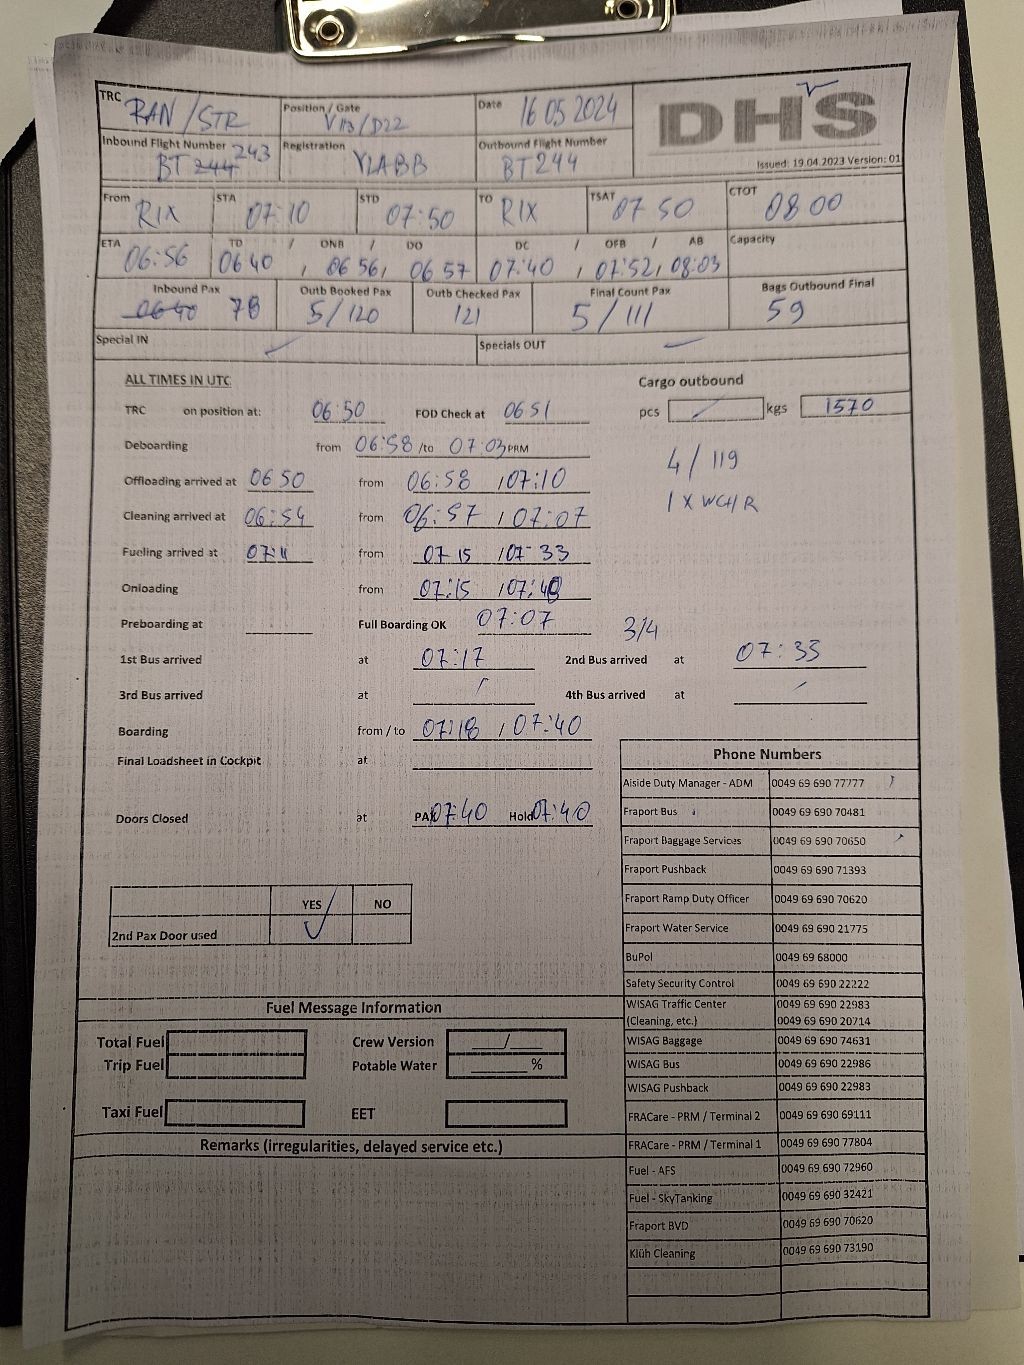 TRC RAN/STR Position / Gate V113/D22 Date 16 05 2024 DHS
Inbound Flight Number BT 244 243 Registration YLABB Outbound Flight Number BT 244 Issued: 19.04.2023 Version: 01
From RIX STA 07:10 STD 07:50 TO RIX TSAT 07 50 CTOT 08 00
ETA 06:56 TD 06 40 / ONB 06 56 / DO 06 57 DC 07:40 / OFB 07:52 / AB 08:03 Capacity
Inbound Pax 06 40 78 Outb Booked Pax 5/120 Outb Checked Pax 121 Final Count Pax 5/111 Bags Outbound Final 59
Special IN Specials OUT
ALL TIMES IN UTC Cargo outbound
TRC on position at: 06:50 FOD Check at 06 51 pcs / kgs 1570
Deboarding from 06:58 /to 07:03 PRM
4/119
Offloading arrived at 06 50 from 06:58 / 07:10
1 X WCH/R
Cleaning arrived at 06:54 from 06:57 / 07:07
Fueling arrived at 07:11 from 07 15 / 07 33
Onloading from 07:15 / 07:40
Preboarding at Full Boarding OK 07:07 3/4
1st Bus arrived at 07:17 2nd Bus arrived at 07:33
3rd Bus arrived at / 4th Bus arrived at /
Boarding from / to 07:18 / 07:40
Final Loadsheet in Cockpit at
Doors Closed at PAX 07:40 Hold 07:40
YES NO
2nd Pax Door used
Fuel Message Information
Total Fuel Crew Version /
Trip Fuel Potable Water %
Taxi Fuel EET
Remarks (irregularities, delayed service etc.)
Phone Numbers
Aiside Duty Manager - ADM 0049 69 690 77777
Fraport Bus 0049 69 690 70481
Fraport Baggage Services 0049 69 690 70650
Fraport Pushback 0049 69 690 71393
Fraport Ramp Duty Officer 0049 69 690 70620
Fraport Water Service 0049 69 690 21775
BuPol 0049 69 68000
Safety Security Control 0049 69 690 22222
WISAG Traffic Center 0049 69 690 22983
(Cleaning, etc.) 0049 69 690 20714
WISAG Baggage 0049 69 690 74631
WISAG Bus 0049 69 690 22986
WISAG Pushback 0049 69 690 22983
FRACare - PRM / Terminal 2 0049 69 690 69111
FRACare - PRM / Terminal 1 0049 69 690 77804
Fuel - AFS 0049 69 690 72960
Fuel - SkyTanking 0049 69 690 32421
Fraport BVD 0049 69 690 70620
Klüh Cleaning 0049 69 690 73190